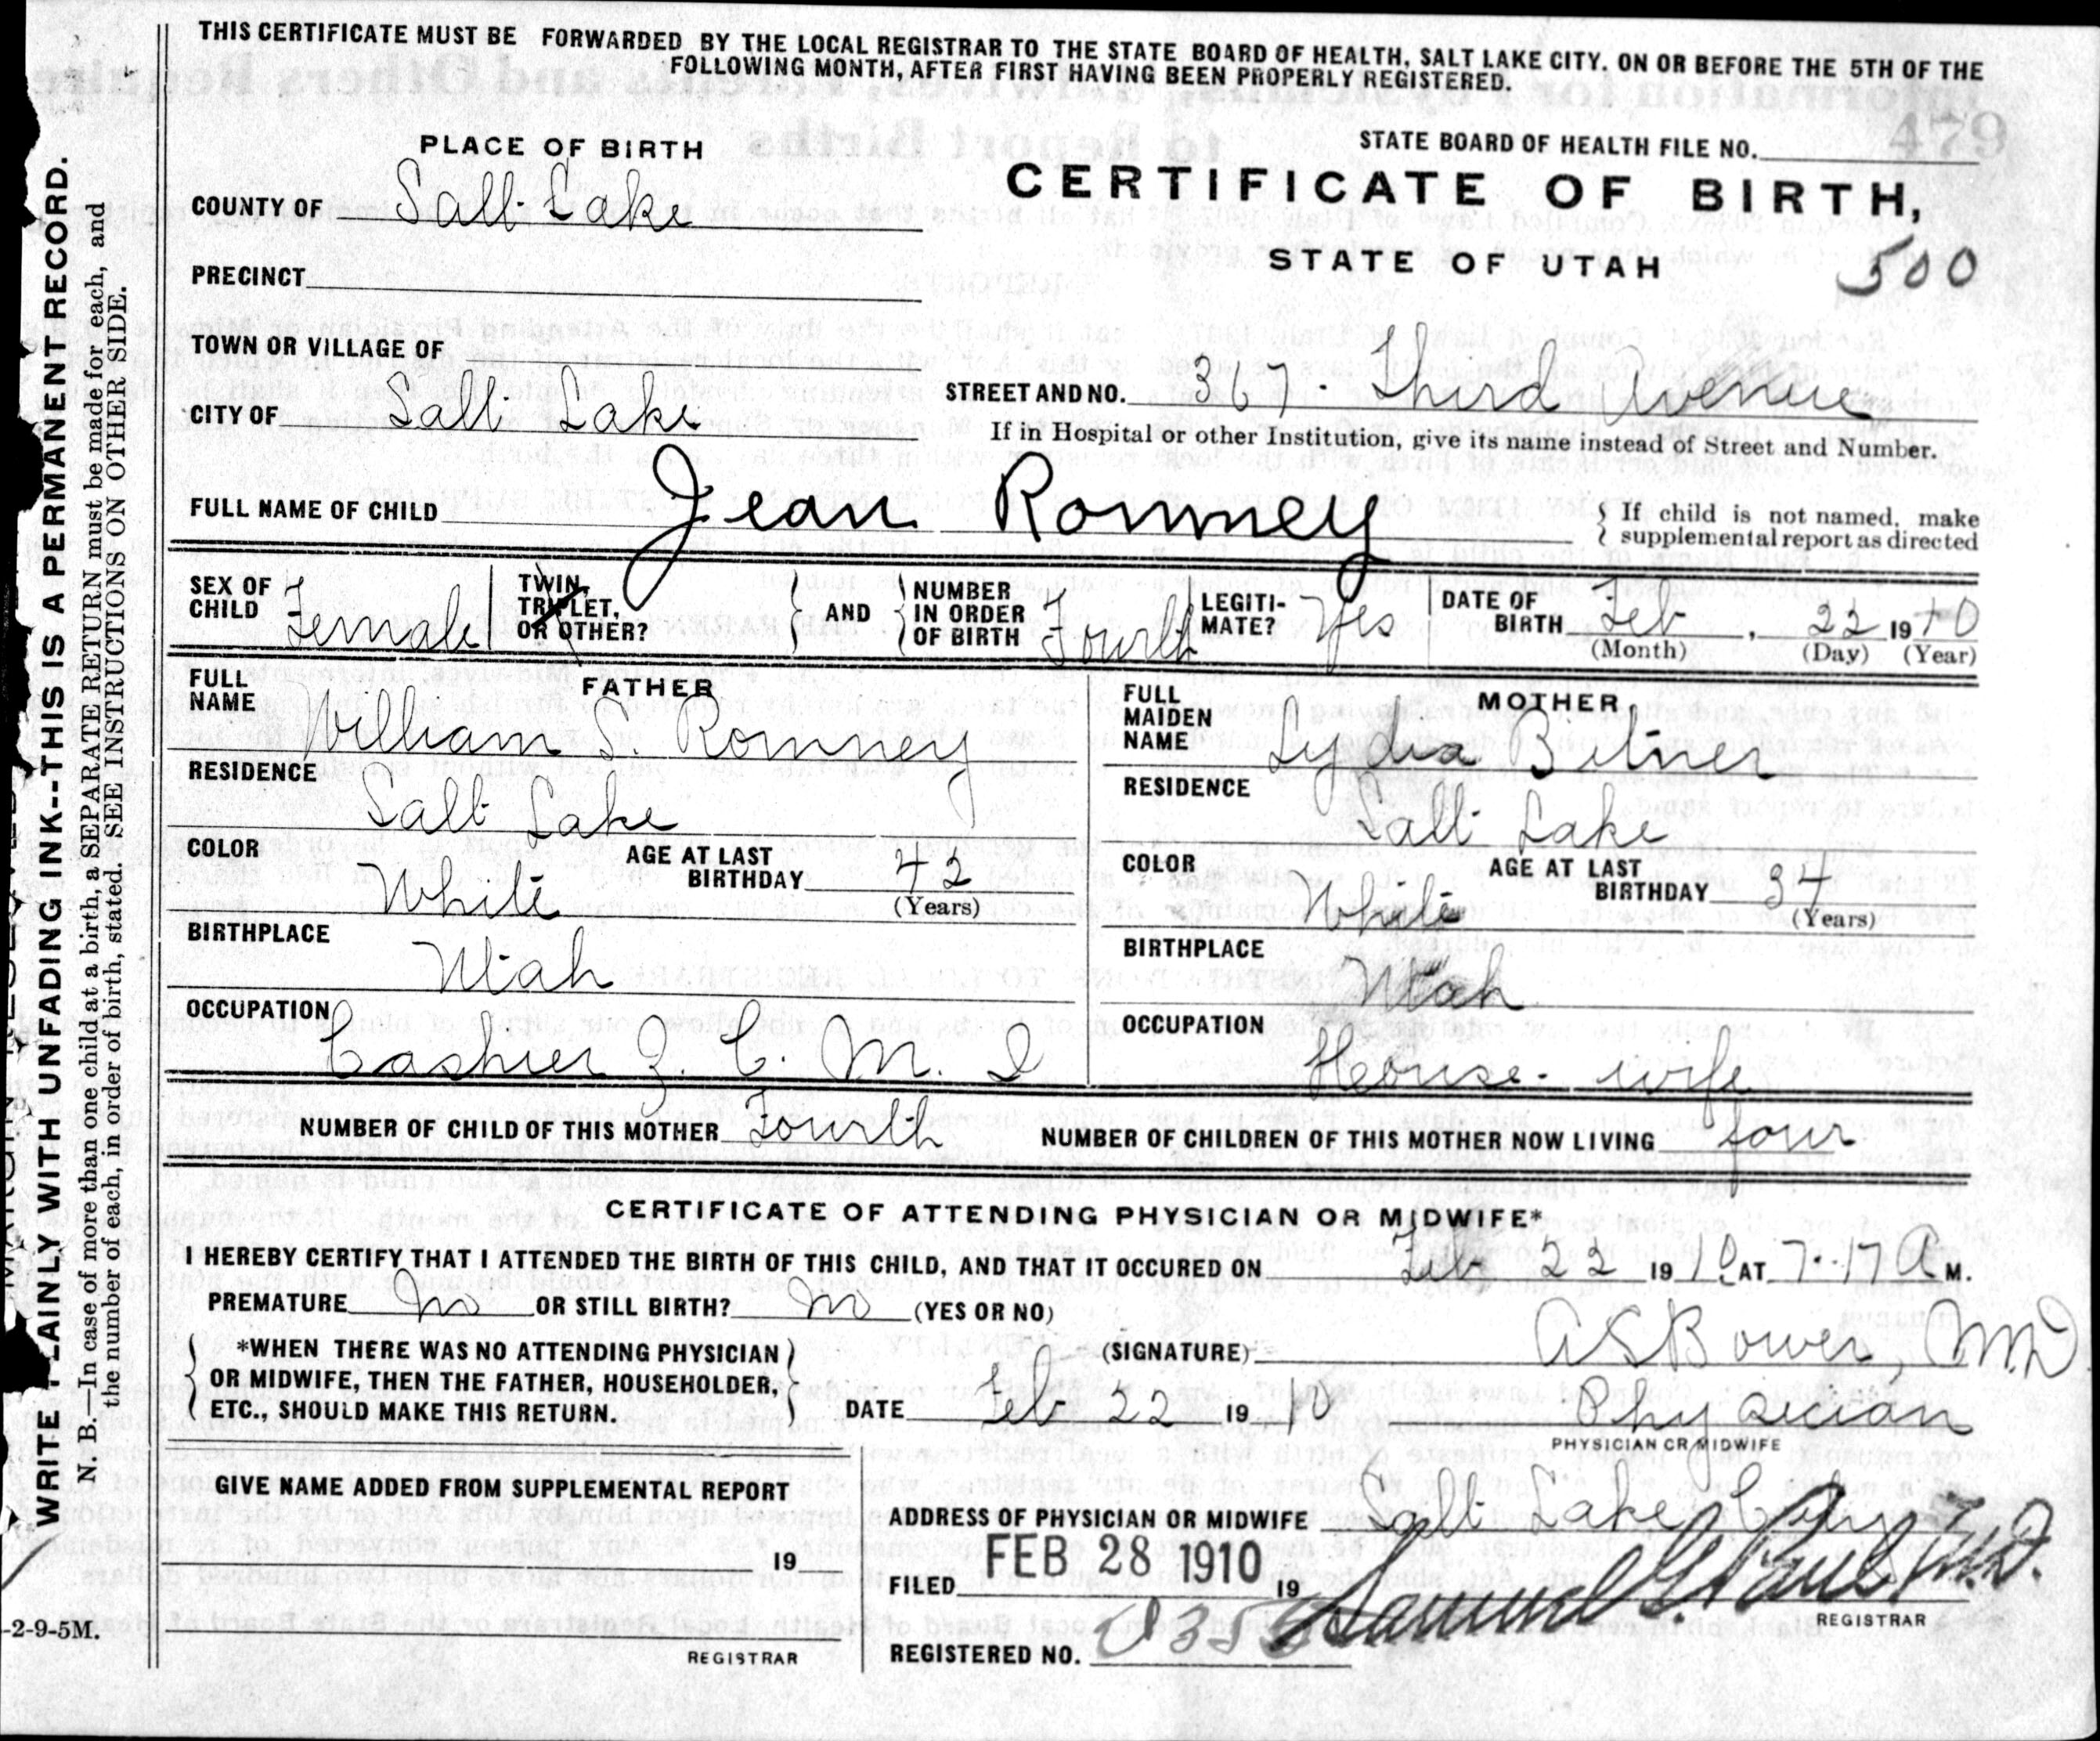 THIS CERTIFICATE MUST BE FORWARDED BY THE LOCAL REGISTRAR TO THE STATE BOARD OF HEALTH, SALT LAKE CITY. ON OR BEFORE THE 5TH OF THE
FOLLOWING MONTH, AFTER FIRST HAVING BEEN PROPERLY REGISTERED.
479
PLACE OF BIRTH
STATE BOARD OF HEALTH FILE NO.
CERTIFICATE OF BIRTH,
COUNTY OF Salt Lake
STATE OF UTAH
500
PRECINCT
TOWN OR VILLAGE OF
CITY OF Salt Lake
STREET AND NO. 367 - Third Avenue
If in Hospital or other Institution, give its name instead of Street and Number.
FULL NAME OF CHILD Jean Romney
{ If child is not named, make
supplemental report as directed
SEX OF CHILD Female
TWIN, TRIPLET, OR OTHER?
AND
NUMBER IN ORDER OF BIRTH Fourth
LEGITIMATE? Yes
DATE OF BIRTH Feb, 22 1910
(Month) (Day) (Year)
FATHER
FULL NAME William S. Romney
RESIDENCE
Salt Lake
COLOR White
AGE AT LAST BIRTHDAY 42
(Years)
BIRTHPLACE
Utah
OCCUPATION
Cashier Z. C. M. I
MOTHER
FULL MAIDEN NAME Lydia Bitner
RESIDENCE
Salt Lake
COLOR White
AGE AT LAST BIRTHDAY 34
(Years)
BIRTHPLACE
Utah
OCCUPATION
House-wife
NUMBER OF CHILD OF THIS MOTHER Fourth
NUMBER OF CHILDREN OF THIS MOTHER NOW LIVING four
CERTIFICATE OF ATTENDING PHYSICIAN OR MIDWIFE*
I HEREBY CERTIFY THAT I ATTENDED THE BIRTH OF THIS CHILD, AND THAT IT OCCURED ON Feb 22 1910 AT 7-17 A M.
PREMATURE no OR STILL BIRTH? no (YES OR NO)
*WHEN THERE WAS NO ATTENDING PHYSICIAN
OR MIDWIFE, THEN THE FATHER, HOUSEHOLDER,
ETC., SHOULD MAKE THIS RETURN.
(SIGNATURE) A S Bower, MD
DATE Feb 22 1910
Physician
PHYSICIAN OR MIDWIFE
GIVE NAME ADDED FROM SUPPLEMENTAL REPORT
19
REGISTRAR
ADDRESS OF PHYSICIAN OR MIDWIFE Salt Lake City
FILED FEB 28 1910 19
Samuel G. Paul M.D.
REGISTRAR
REGISTERED NO.
WRITE PLAINLY WITH UNFADING INK--THIS IS A PERMANENT RECORD.
N. B.—In case of more than one child at a birth, a SEPARATE RETURN must be made for each, and
the number of each, in order of birth, stated. SEE INSTRUCTIONS ON OTHER SIDE.
-2-9-5M.